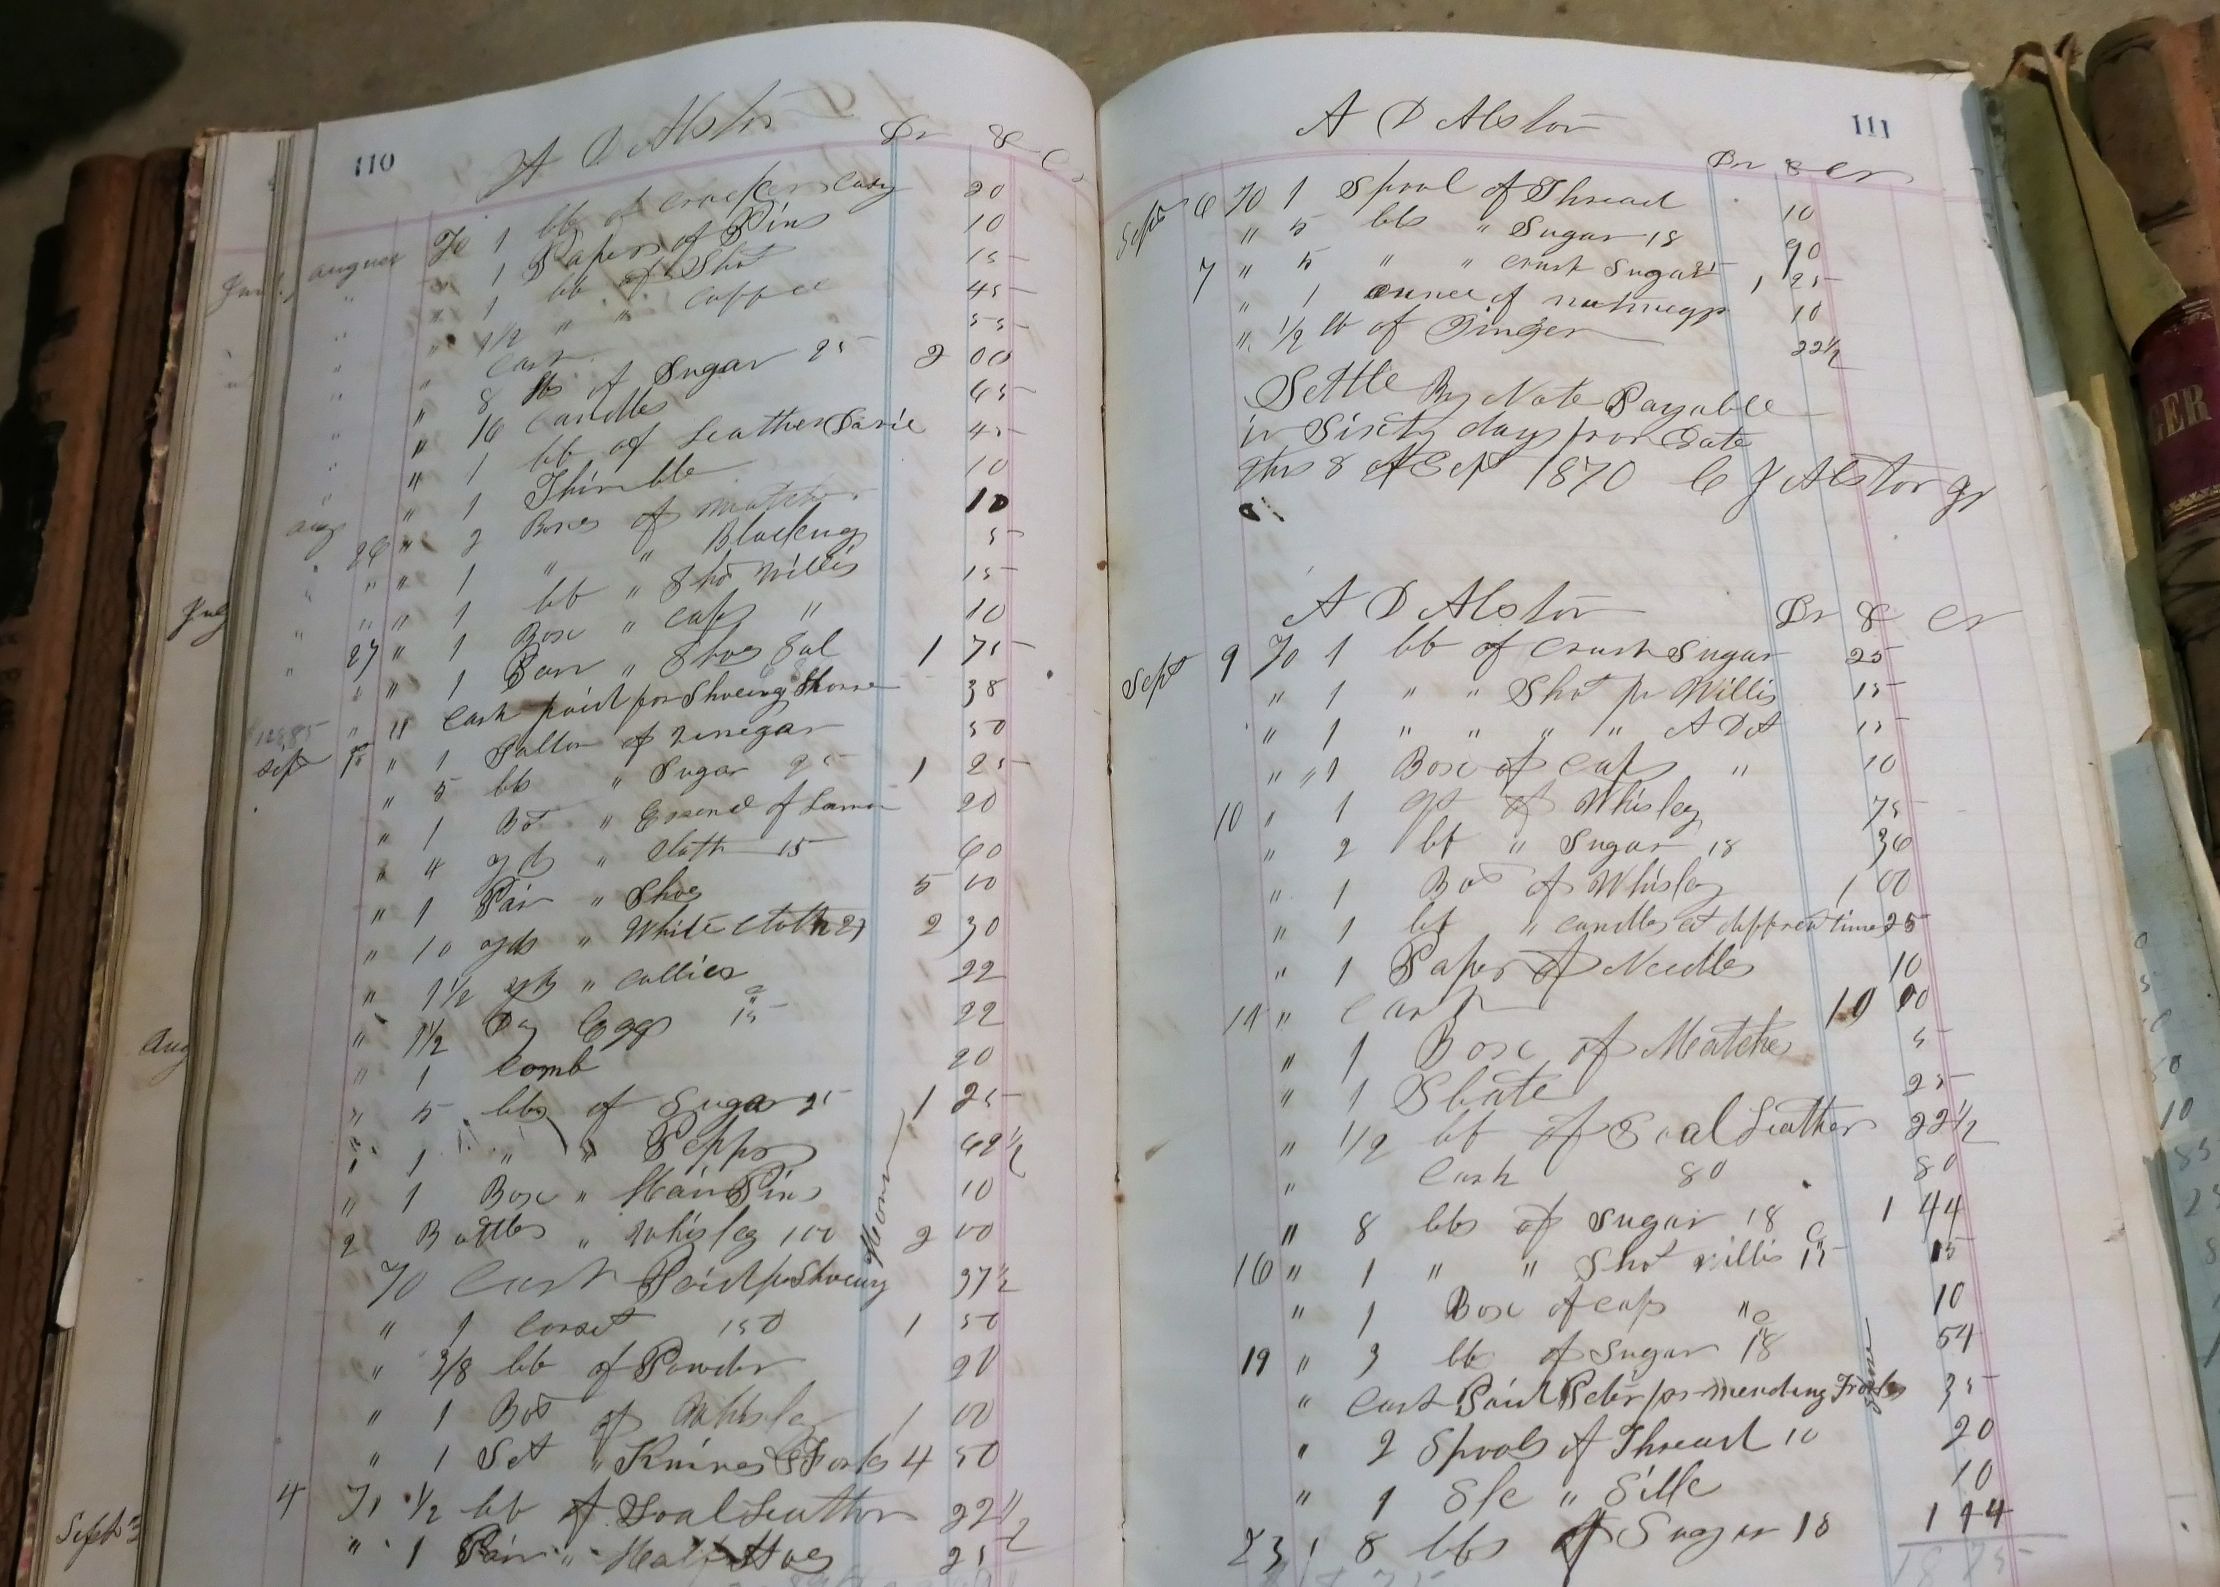 110
A D Alston
Dr $ Cr
august 70 1 lb of crackers 20
" 1 Papers of Pins 10
" 1 lb of Shot 15
" 1 1/2 " " Coffee 45
" Cash 55
" 8 lbs of Sugar 25 2 00
" 16 Candles 65
" 1 lb of Leather 45
" 1 Thimble 10
aug 26 " 2 Boxes of matches 10
" " 1 " " Blacking 5
" " 1 lb " Shot Willis 15
" " 1 Box " Caps " 10
27 " 1 Pair " Shoes Sal 1 75
" " Cash paid for Shoeing Horse 38
Sept " 1 Gallon of Vinegar 50
" 5 lbs " Sugar 25 1 25
" 1 Bot " Essence of Lemon 20
" 4 yds " Cloth 15 60
" 1 Pair " Shoes 5 00
" 10 yds " White Cloth 23 2 30
" 1 1/2 yds " Callico 22
" 1 1/2 Dz Eggs 15 22
" 1 Comb 20
" 5 lbs of Sugar 25 1 25
" 1 " " Pepper 62 1/2
" 1 Box " Hair Pins 10
2 Bottles " Whiskey 100 2 00
70 Cash Paid for Shoeing Horse 37 1/2
" 1 Corset 150 1 50
" 3/8 lb of Powder 20
" 1 Bot of Whiskey 1 00
" 1 Set " Knives & Forks 4 50
4 71 1/2 lb of Soal Leather 22 1/2
" 1 Pair " Half Hoes 25
July
Aug
Sept
111
A D Alston
Dr $ Cr
Sept 6 70 1 Spool of Thread 10
" 5 lbs " Sugar 18 90
7 " 5 " " Crush Sugar 25 1 25
" 1 ounce of nutmegs 10
" 1/2 lb of Ginger 22 1/2
Settle By Note Payable
in Sixty days from Date
this 8 of Sept 1870 C J Alston
A D Alston Dr $ Cr
Sept 9 70 1 lb of Crush Sugar 25
" 1 " " Shot pr Willis 15
" 1 " " " " A D A 15
" " 1 Box of Caps " 10
10 " 1 qt of Whiskey 75
" 2 lb " Sugar 18 36
" 1 Bot of Whiskey 1 00
" 1 lb " candles at diffrent times 25
" 1 Paper of Needles 10
14 " Cash 10 00
" 1 Box of Matches 5
" 1 Slate 25
" 1/2 lb of Soal Leather 22 1/2
" Cash 80 80
" 8 lbs of Sugar 18 1 44
16 " 1 " " Shot Willis 15 15
" 1 Box of Caps " 10
19 " 3 lb of Sugar 18 54
" Cash Paid Peter for mending 35
" 2 Spools of Thread 10 20
" 1 Sk " Silk 10
23 " 8 lbs of Sugar 18 1 44
18 75